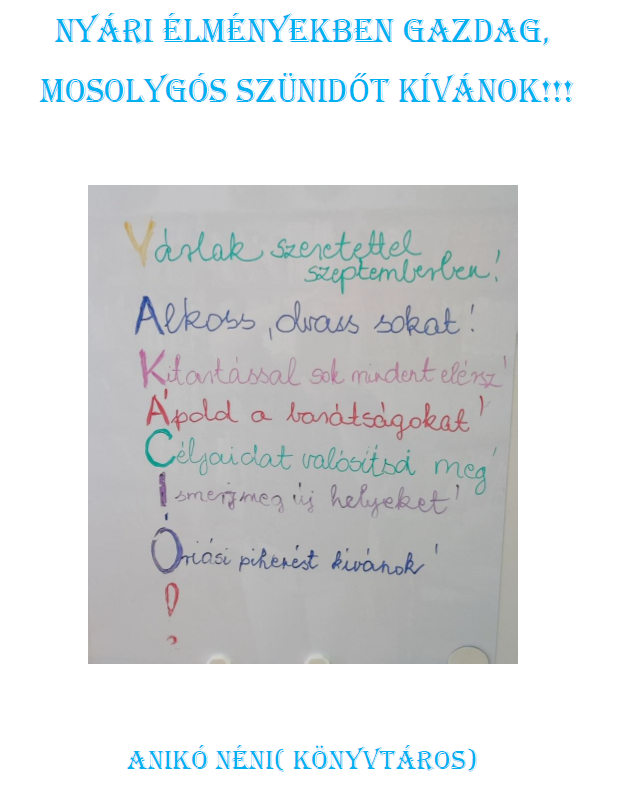 NYÁRI ÉLMÉNYEKBEN GAZDAG,
MOSOLYGÓS SZÜNIDŐT KÍVÁNOK!!!
Várlak szeretettel
szeptemberben!
Alkoss, olvass sokat!
Kitartással sok mindent elérsz!
Ápold a barátságokat!
Céljaidat valósítsd meg!
Ismerj meg új helyeket!
Óriási pihenést kívánok!
!
ANIKÓ NÉNI( KÖNYVTÁROS)